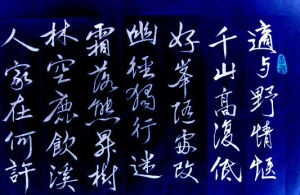 適与野情惬
千山高復低
好峯随處改
幽徑獨行迷
霜落熊昇樹
林空鹿飲溪
人家在何許